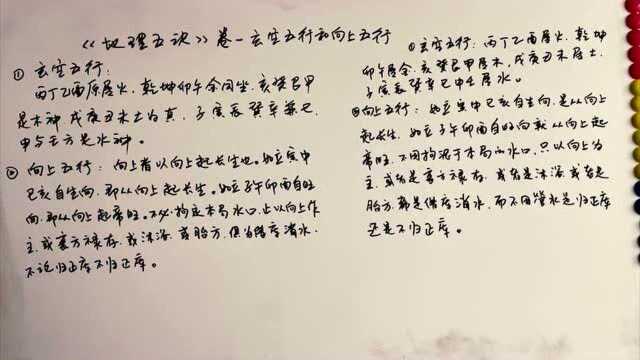 《地理五诀》卷一玄空五行和向上五行
① 玄空五行：
丙丁乙酉原属火，乾坤卯午金同坐，亥癸艮甲
是木神，戌庚丑未土为真，子寅辰癸辛兼巳，
申与壬方是水神。
② 向上五行：向上者以向上起长生也。如立寅申
巳亥自生向，即从向上起长生。如立子午卯酉自旺
向，即从向上起帝旺。不必拘泥本局水口，止以向上作
主，或寄方禄存，或沐浴，或胎方，俱为借库消水，
不论归正库不归正库。
①玄空五行：丙丁乙酉属火，乾坤
卯午属金，亥癸艮甲属木，戌庚丑未属土，
子寅辰癸辛巳申壬属水。
②向上五行：如立寅申巳亥自生向，是从向上
起长生，如立子午卯酉自旺向就从向上起
帝旺。不用拘泥于本局的水口，只以向上为
主，或者是寄方禄存，或者是沐浴，或者是
胎方，都是借库消水，而不用管水是归正库
还是不归正库。